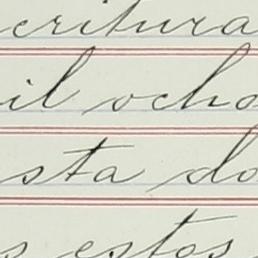 critura
il ocho
sta do
s estos